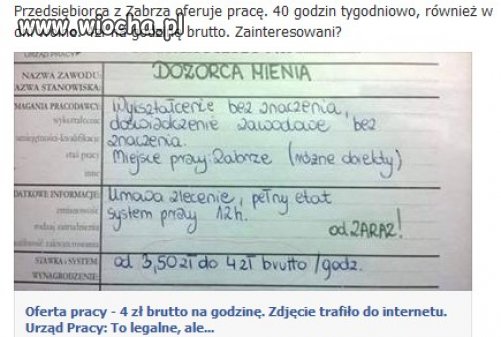 Przedsiębiorca z Zabrza oferuje pracę. 40 godzin tygodniowo, również w
na godzinę brutto. Zainteresowani?
www.wiocha.pl
URZĄD PRACY:
NAZWA ZAWODU: DOZORCA MIENIA
NAZWA STANOWISKA:
WYMAGANIA PRACODAWCY: Wykształcenie bez znaczenia,
wykształcenie doświadczenie zawodowe bez
umiejętności-kwalifikacje znaczenia.
staż pracy Miejsce pracy: Zabrze (różne obiekty)
inne
DODATKOWE INFORMACJE: Umowa zlecenie, pełny etat
zmianowość system pracy 12h.
rodzaj zatrudnienia od ZARAZ!
możliwość zakwaterowania
STAWKA i SYSTEM od 3,50 zł do 4 zł brutto /godz.
WYNAGRODZENIE:
Oferta pracy - 4 zł brutto na godzinę. Zdjęcie trafiło do internetu.
Urząd Pracy: To legalne, ale...